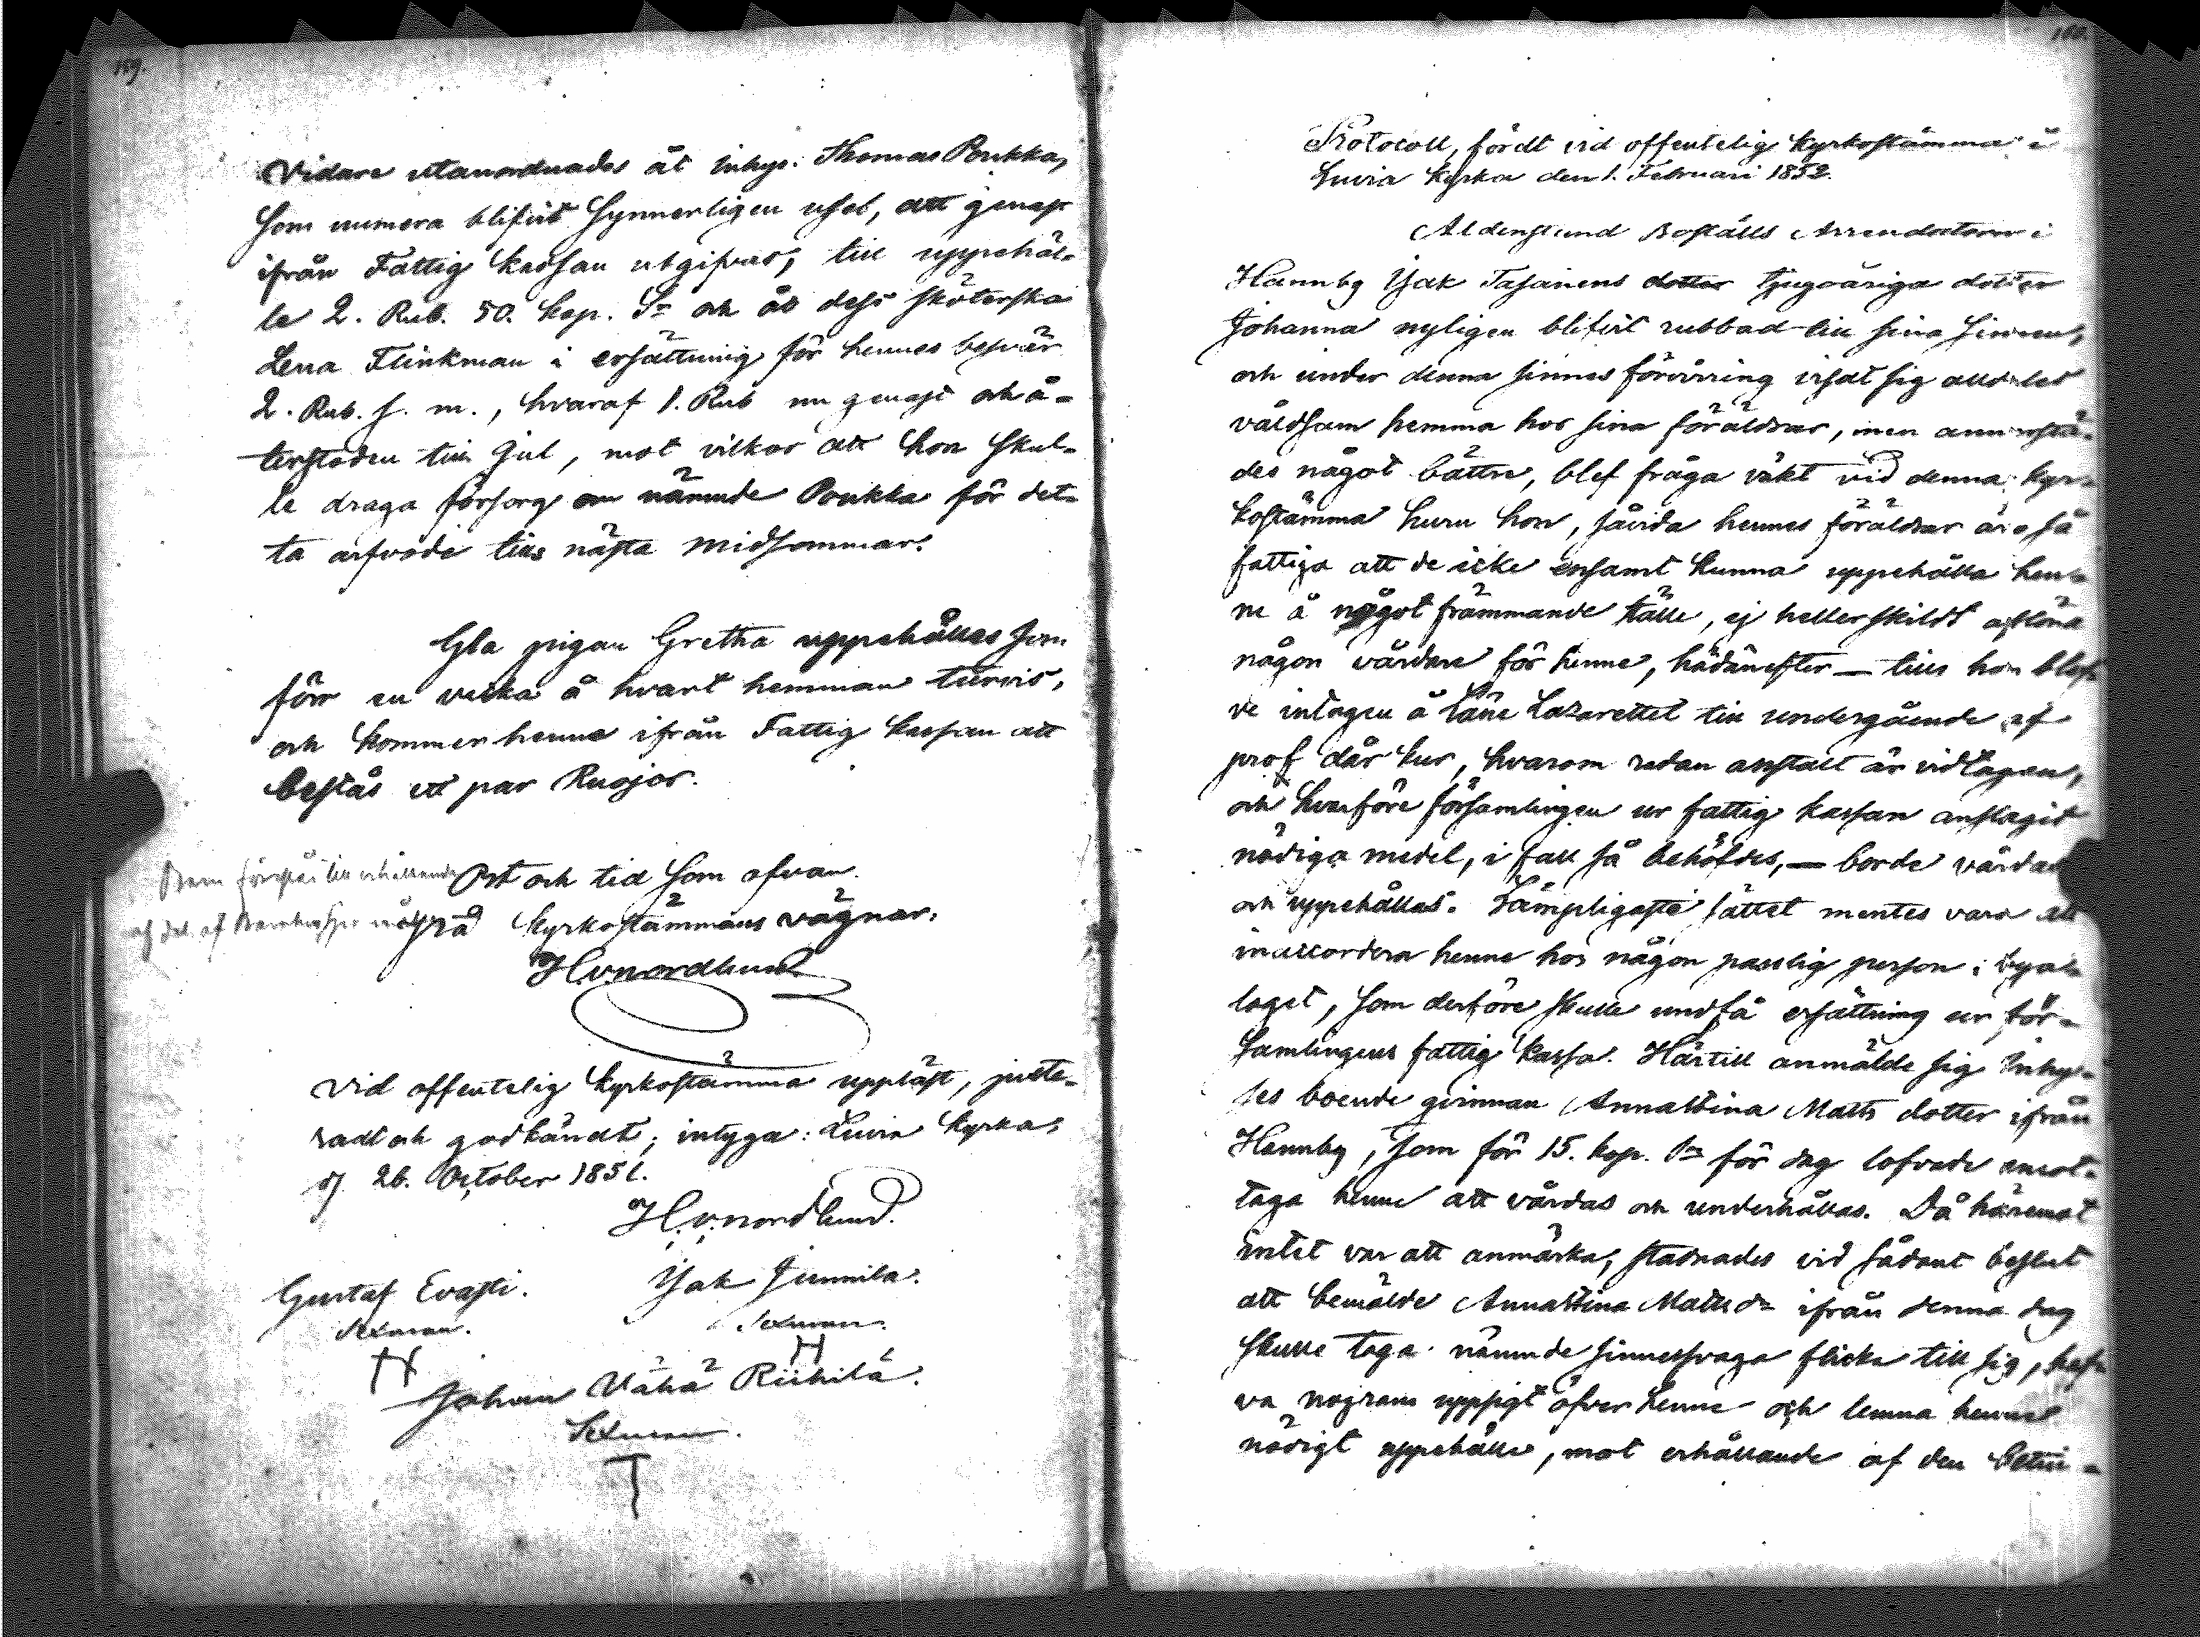 159.
Vidare utanordnades åt inhys. Thomas Poukka,
som numera blifvit synnerligen usel, att genast
ifrån Fattig kassan utgifvas, till uppehäl-
le 2. Rub. 50. kop. Sr och åt dess sköterska
Lena Flinkman i ersättning för hennes besvär
2. Rub. s. m., hvaraf 1. Rub nu genast och å-
terstoden till Jul, mot vilkor att hon skul-
le draga försorg om nämnde Poukka för det-
ta arfvode till nästa midsommar.
Gla pigan Gretha uppehålles som
förr en vecka å hvart hemman turvis,
och kommer henne ifrån Fattig kassan att
bestås ett par Ruojor.
Ort och tid som ofvan.
På Kyrkostämmans vägnar,
H. v. nordlund
Vid offentelig Kyrkostämma uppläst, juste-
radt och godkändt; intyga: Luvia Kyrka,
d. 26. October 1851.
H. v. nordlund.
Gustaf Evasti.
Sexman.
Isak Junnila.
Sexman.
Johan Vähä Riihilä.
Sexman.
160.
Protocoll, fördt vid offentelig Kyrkostämma i
Luvia Kyrka den 1. Februari 1852.
Aldenslund Boställs Arrendatorn i
Hannby Isak Tasanens dotter tjugoåriga dotter
Johanna nyligen blifvit rubbad till sina sinnen,
och under denna sinnes förvirring visat sig alldeles
våldsam hemma hos sina föräldrar, men annorstä-
des något bättre, blef fråga väkt vid denna kyr-
kostämma huru hon, såvida hennes föräldrar äro så
fattiga att de icke ensamt kunna uppehålla hen-
ne å något främmande ställe, ej heller skildt aflöna
någon vårdare för henne, hädanefter — tills hon blef-
ve intagen å Läne Lazarettet till undergående af
prof dår kur, hvarom redan anstalt är vidtagen,
och hvarföre församlingen ur fattig kassan anslagit
nödiga medel, i fall så behöfdes, — borde vårdas
och uppehållas. Lämpligaste sättet mentes vara att
inaccordera henne hos någon passlig person i bya-
laget, som derföre skulle undfå ersättning ur för-
samlingens fattig kassa. Härtill anmälde sig Inhy-
ses boende qvinnan Annastina Matts dotter ifrån
Hannby, som för 15. kop. Sr för dag lofvade mot-
taga henne att vårdas och underhållas. Då häremot
intet var att anmärka, stadnades vid sådant beslut
att bemälde Annastina Matts dr ifrån denna dag
skulle taga nämnde sinnessvaga flicka till sig, haf-
va nogrann uppsigt öfver henne och lemna henne
nödigt uppehälle, mot erhållande af den betin-